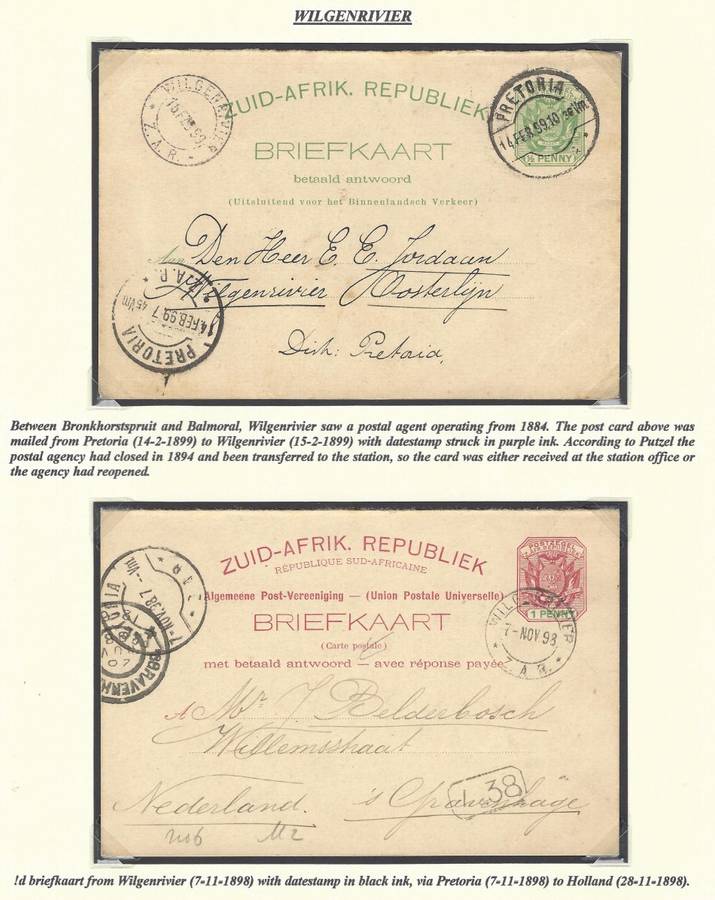 WILGENRIVIER
WILGENRIVIER
15 FEB 99
Z.A.R.
ZUID-AFRIK. REPUBLIEK
PRETORIA
14 FEB.99.10
½ PENNY
BRIEFKAART
betaald antwoord
(Uitsluitend voor het Binnenlandsch Verkeer)
Aan Den Heer E. E. Jordaan
Wilgenrivier Oosterlijn
Dist: Pretoria
Z.A.R.
14 FEB.99.7 45 Vm
PRETORIA
Between Bronkhorstspruit and Balmoral, Wilgenrivier saw a postal agent operating from 1884. The post card above was
mailed from Pretoria (14-2-1899) to Wilgenrivier (15-2-1899) with datestamp struck in purple ink. According to Putzel the
postal agency had closed in 1894 and been transferred to the station, so the card was either received at the station office or
the agency had reopened.
ZUID-AFRIK. REPUBLIEK
RÉPUBLIQUE SUD-AFRICAINE
Algemeene Post-Vereeniging — (Union Postale Universelle)
BRIEFKAART
(Carte postale)
met betaald antwoord — avec réponse payée
POSTZEGEL
1 PENNY
7-NOV 98
Z.A.R.
7-NOV.98.7 - Vm.
A Mr. J. Belderbosch
Willemsstraat
Nederland. 's Gravenhage
L.38
!d briefkaart from Wilgenrivier (7-11-1898) with datestamp in black ink, via Pretoria (7-11-1898) to Holland (28-11-1898).